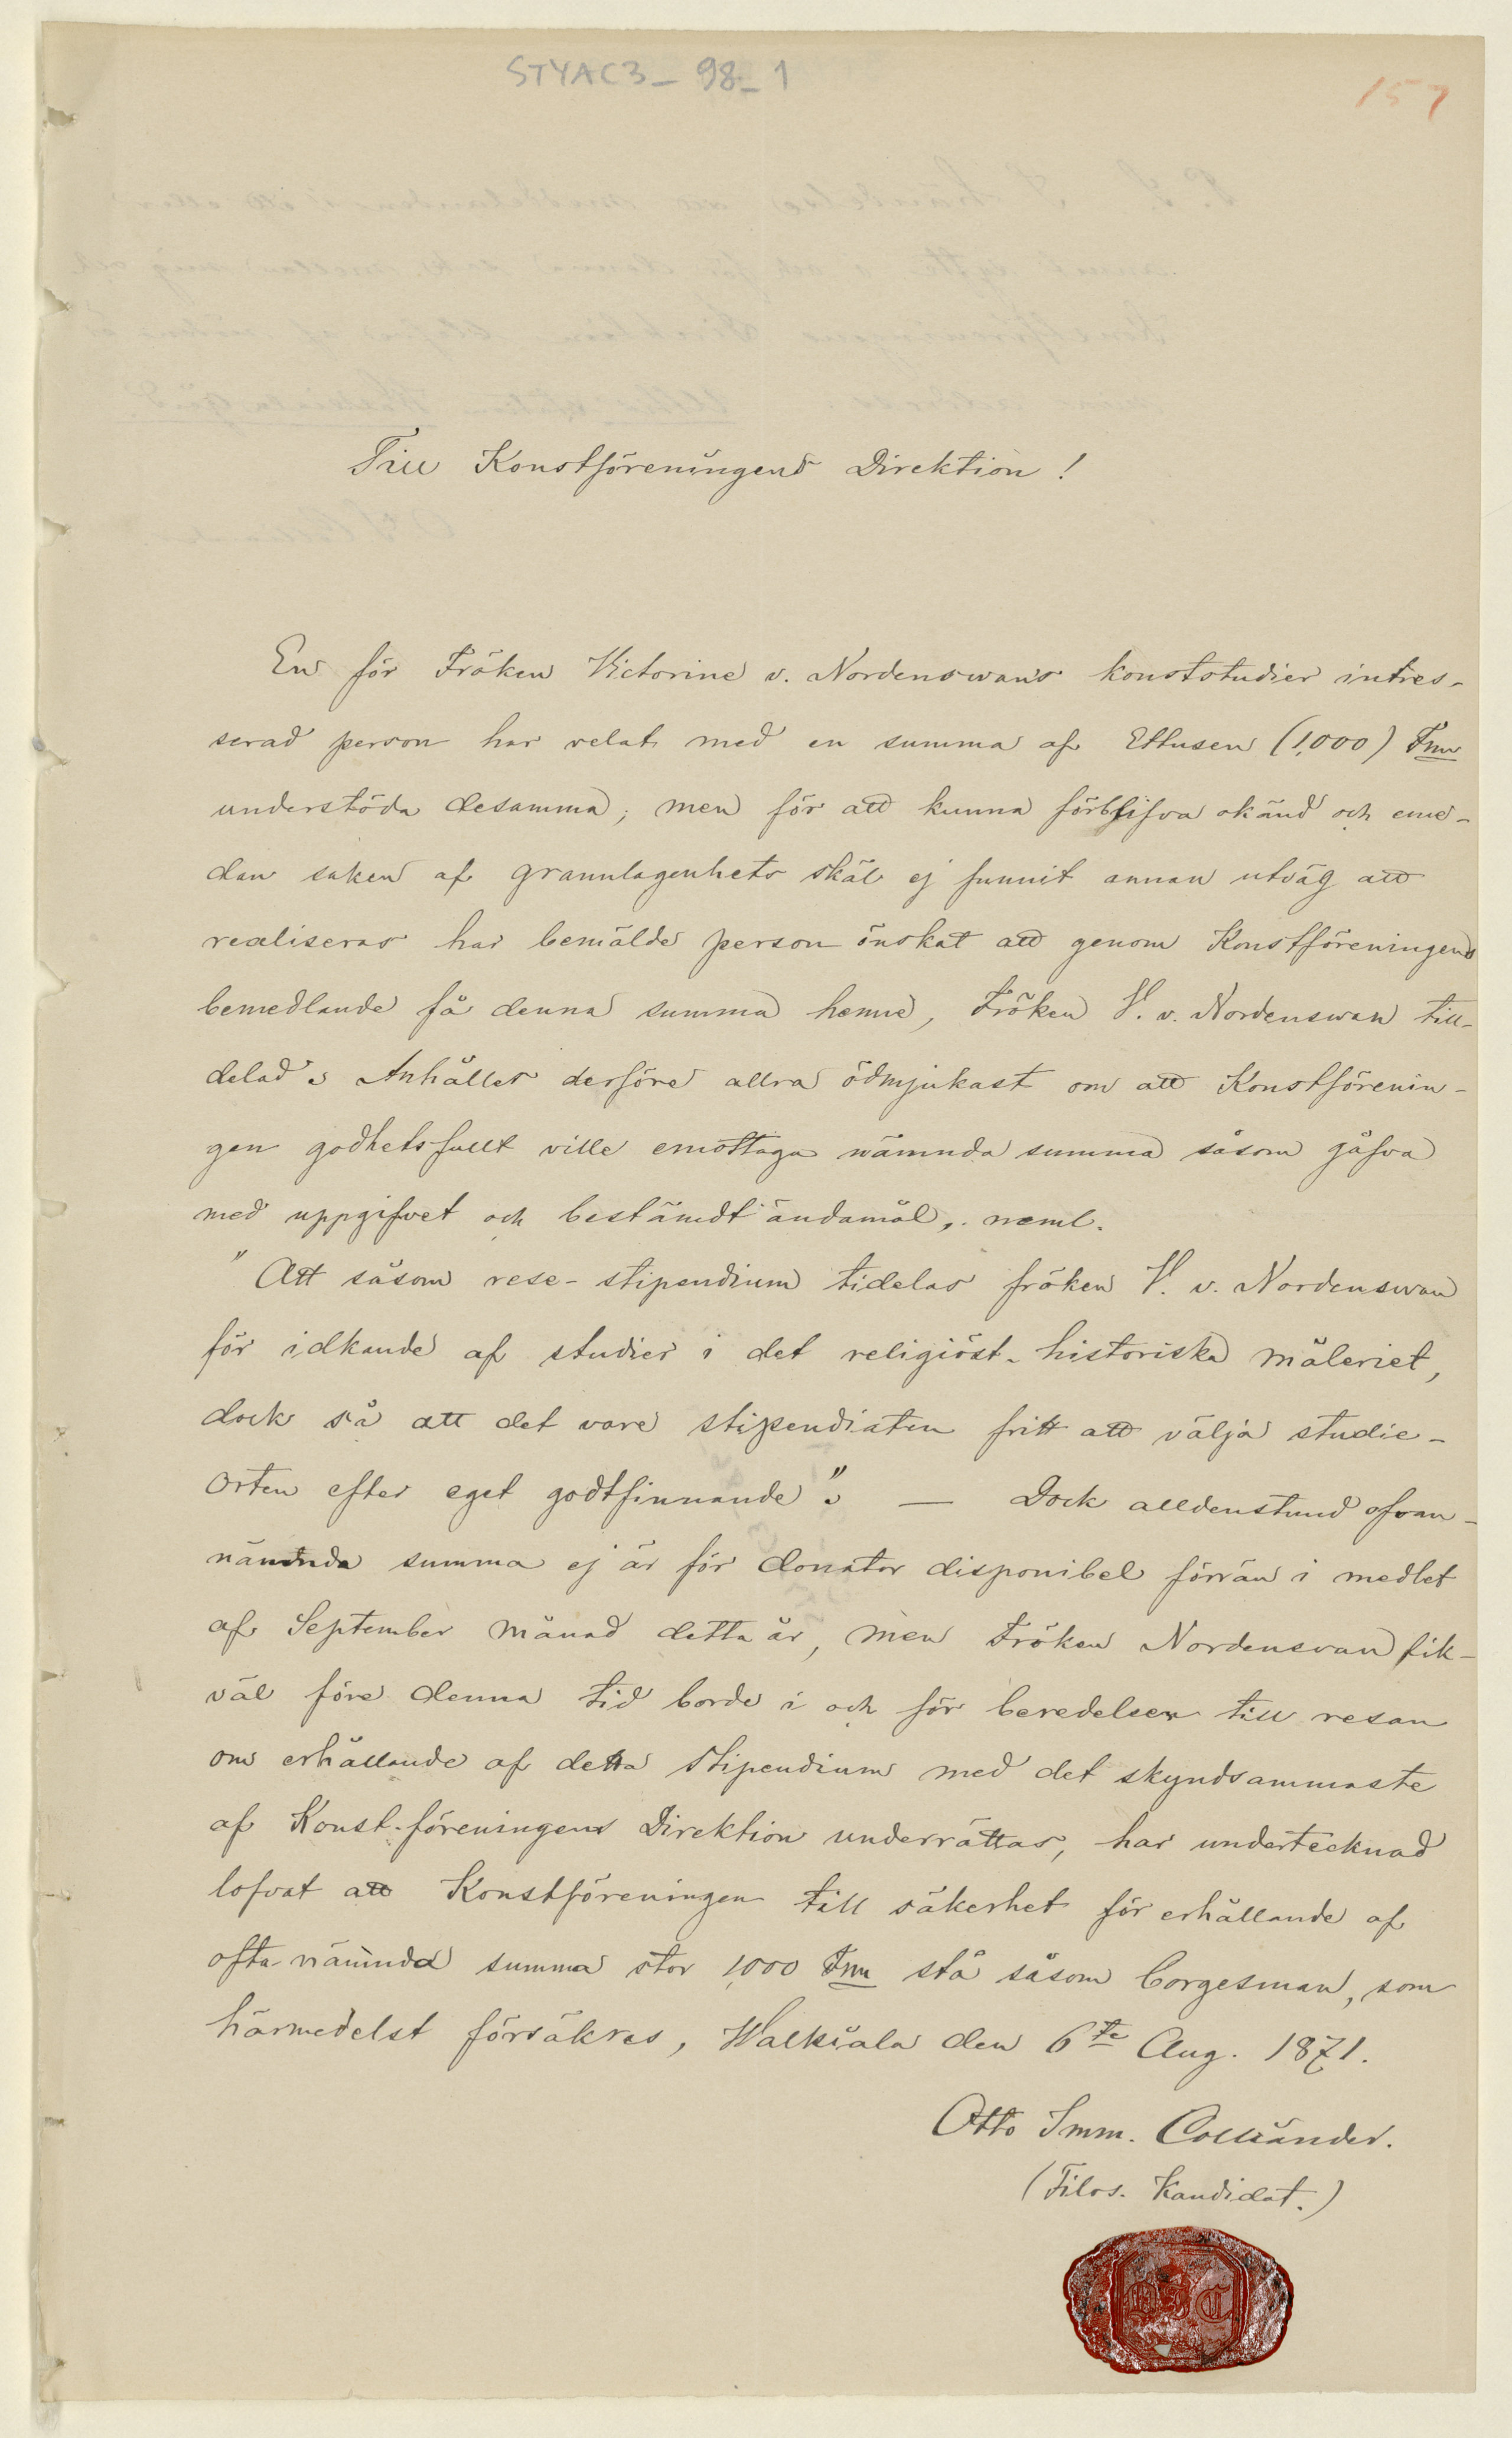 STYAC3_ 98_1
157
Till Konstföreningens Direktion!
En för Fröken Victorine v. Nordenswans konststudier intres-
serad person har velat med en summa af Ettusen (1,000) Fmr
understöda desamma; men för att kunna förblifva okänd och eme-
dan saken af grannlagenhets skäl ej funnit annan utväg att
realiseras har bemälde person önskat att genom Konstföreningens
bemedlande få denna summa henne, Fröken V. v. Nordenswan till-
delad. Anhåller derföre allra ödmjukast om att Konstförenin-
gen godhetsfullt ville emottaga nämnda summa såsom gåfva
med uppgifvet och bestämdt ändamål, neml.
"Att såsom rese-stipendium tidelas fröken V. v. Nordenswan
för idkande af studier i det religiöst-historiska måleriet,
dock så att det vore stipendiaten fritt att välja studie-
orten efter eget godtfinnande". — Dock alldenstund ofvan-
nämnda summa ej är för donator disponibel förrän i medlet
af September månad detta år, men Fröken Nordensvan lik-
väl före denna tid borde i och för beredelser till resan
om erhållande af detta stipendium med det skyndsammaste
af Konst-föreningens Direktion underrättas, har undertecknad
lofvat att Konstföreningen till säkerhet för erhållande af
ofta-nämnda summa stor 1,000 Fmr stå såsom borgesman, som
härmedelst försäkras, Walkiala den 6te Aug. 1871.
Otto Imm. Colliander.
(Filos. Kandidat.)
OIC